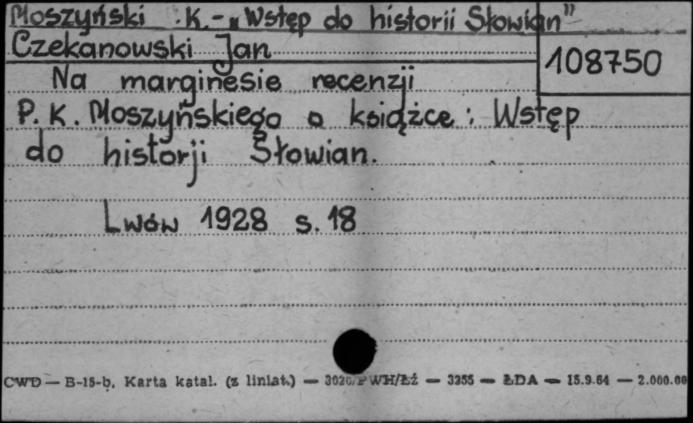 Moszyński K. - „Wstęp do historii Słowian”
Czekanowski Jan
108750
Na marginesie recenzji
P. K. Moszyńskiego o książce: Wstęp
do historji Słowian.
Lwów 1928 s. 18
CWD — B-15-b, Karta katal. (z liniat.) — 3020/PWH/Łź — 3255 — ŁDA — 15.9.64 — 2.000.00